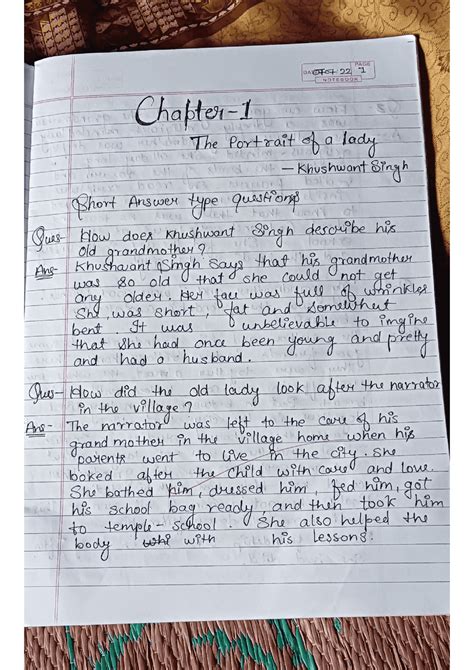 PAGE
DATE 22 1
NOTEBOOK
Chapter-1
The Portrait of a lady
- Khushwant Singh
Short Answer type questions
Ques- How does Khushwant Singh describe his
old grandmother?
Ans- Khushwant Singh says that his grandmother
was so old that she could not get
any older. Her face was full of wrinkles
She was short, fat and somewhat
bent. It was unbelievable to imgine
that she had once been young and pretty
and had a husband.
Ques- How did the old lady look after the narrator
in the village?
Ans- The narrator was left to the care of his
grand mother in the village home when his
parents went to live in the city. She
looked after the child with care and love.
She bathed him, dressed him, fed him, got
his school bag ready, and then took him
to temple-school. She also helped the
body whi with his lessons.